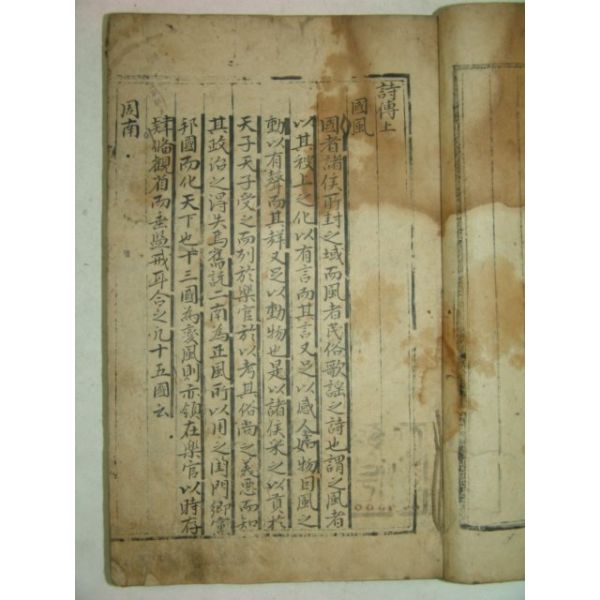 詩傳上
國風
國者諸侯所封之域而風者民俗歌謠之詩也謂之風者
以其被上之化以有言而其言又足以感人如物因風之
動以有聲而其聲又足以動物也是以諸侯采之以貢於
天子天子受之而列於樂官於以考其俗尚之美惡而知
其政治之得失焉舊說二南為正風所以用之閨門鄉黨
邦國而化天下也十三國為變風則亦領在樂官以時存
肄備觀省而垂監戒耳合之凡十五國云
周南